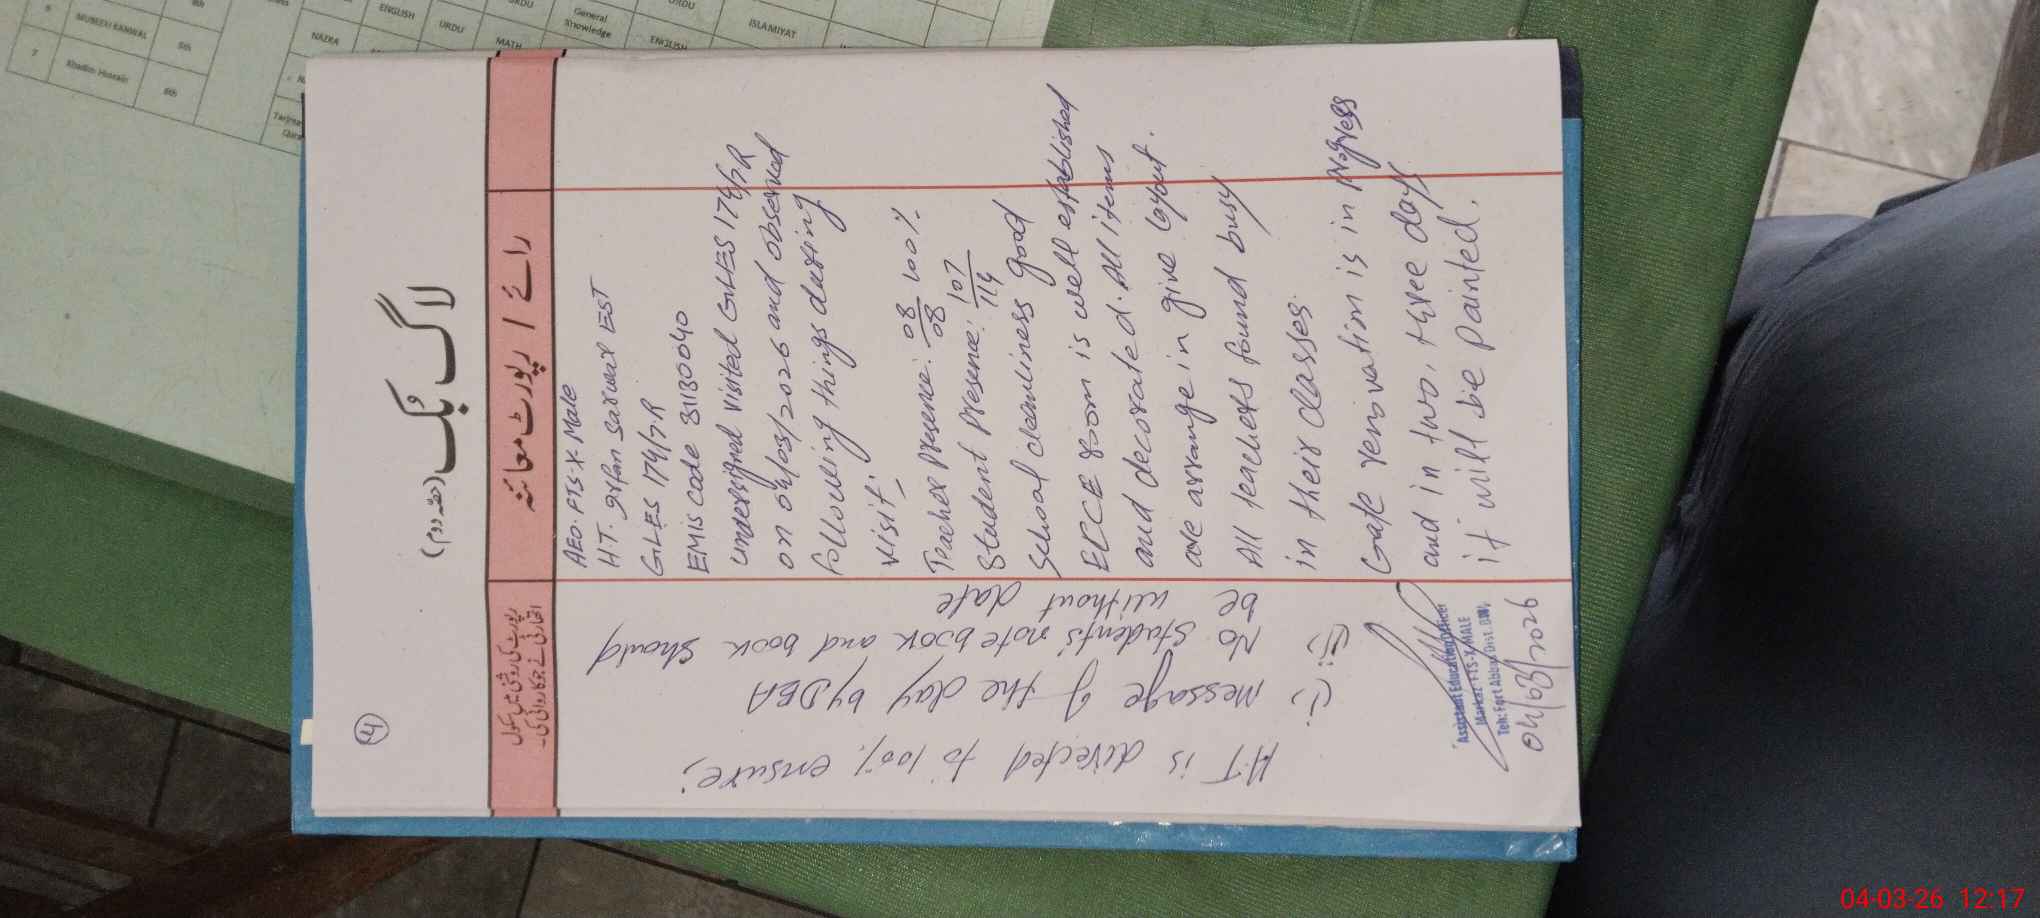 MUBEEN KANWAL
7
Khadim Hussain
8th
5th
6th
NAZRA
ENGLISH
URDU
MATH
URDU
General Knowledge
URDU
ENGLISH
ISLAMIYAT
4
لاگ بُک (حصہ دوم)
رائے / رپورٹ معائنہ
AEO. FTS-X-Male
HT. Irfan Sarwar EST
GLES 174/7.R
EMIS code 31130040
Undersigned visited GLES 174/7R
on 04/03/2026 and observed
following things during
visit;
Teacher Presence: 08/08 100%
Student Presence: 107/114
School cleanliness good
ECCE room is well established
and decorated. All items
are arrange in give layout.
All teachers found busy
in their classes.
Gate renovation is in Progress
and in two, three days
it will be painted.
HT is directed to 100% ensure;
(i) Message of the day by DEA
(ii) No Student's note book and book should
be without date
Assistant Education Officer
Markaz FTS-X-MALE
Teh: Fort Abbas Dist. BWN
04/03/2026
04-03-26 12:17